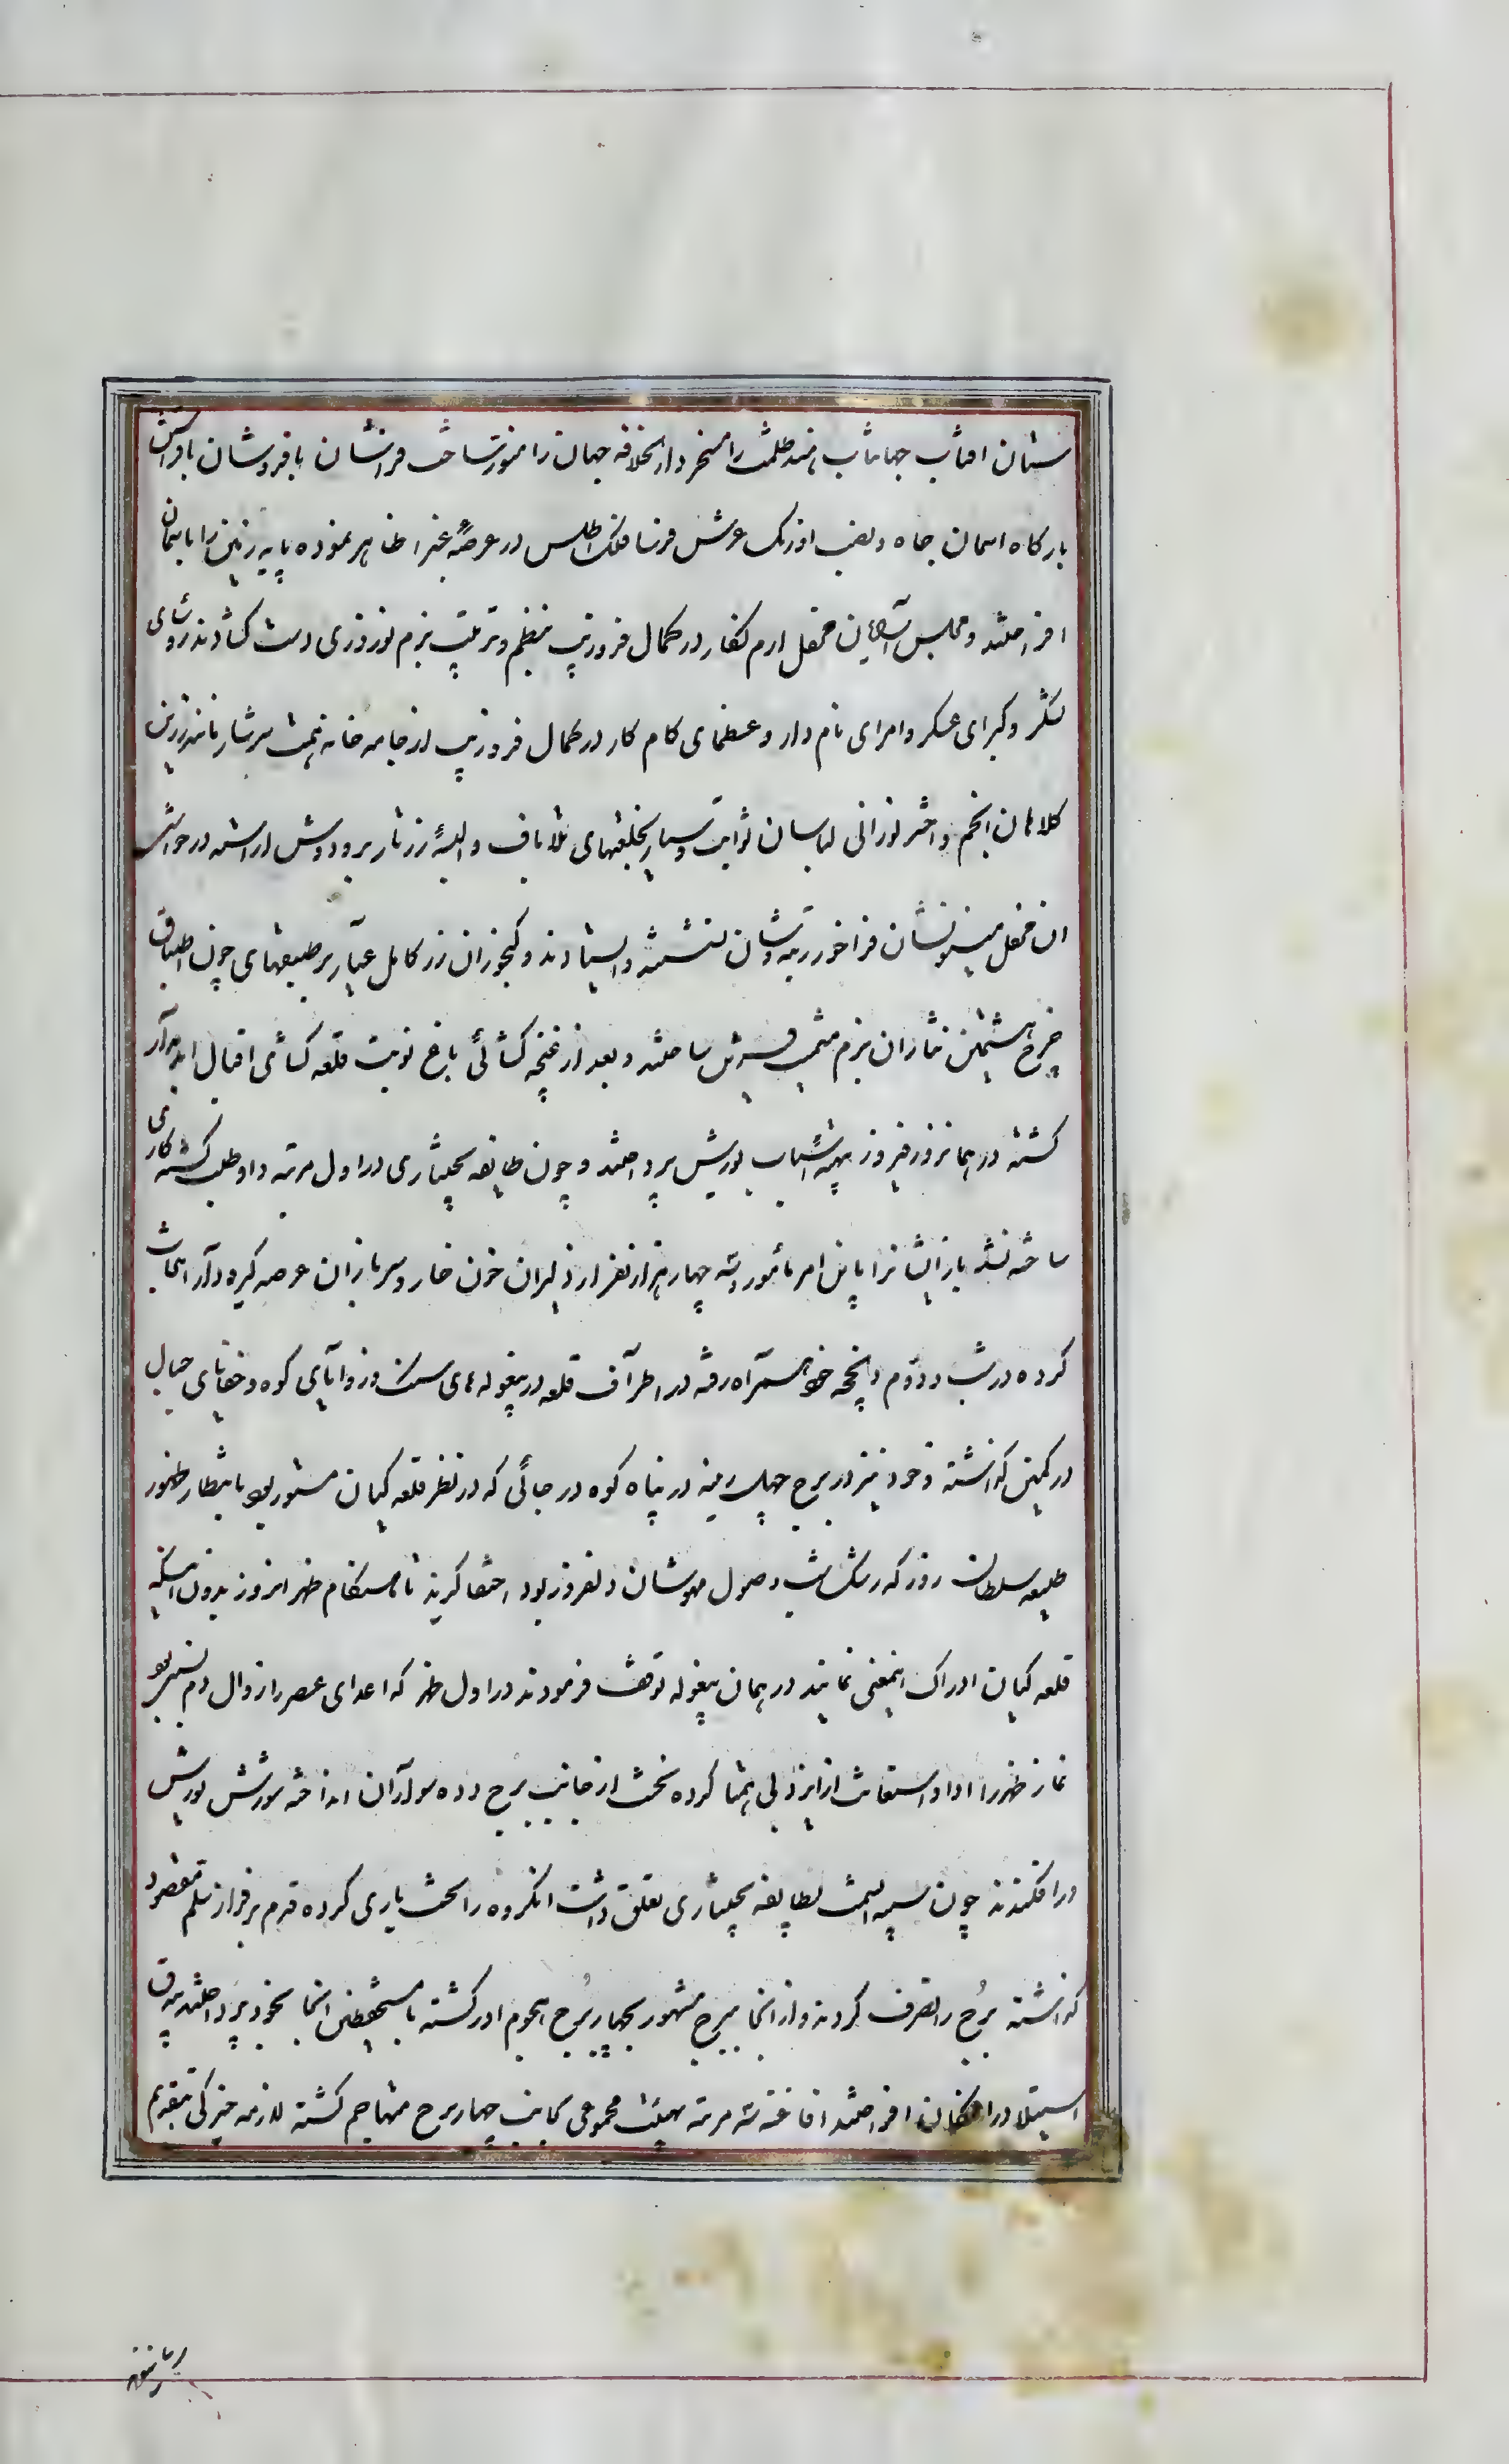 ستان افتاب جهانتاب هند ظلمت را مسخر و دار الخلافه جهان را منور ساخت فراشان با فر و شان بافراختن
بارکاه اسمان جاه و نصب اورنک عرش فرسا فلک اطلس در عرصه غبرا ظاهر نموده پایه زمین را باسمان
افراختند و مجلس محفل ارم کفار در کمال فر و زیب بنظم و ترتیب بزم نوروزی دست کشادند روسای
لشکر و کبرای عسکر و امرای نام دار و عظمای کام کار در کمال فر و زیب از جامه خانه همت سرشار مانند زرین
کلاهان انجم و اختر نورانی لباسان ثوابت و سیار بخلعتهای طلاباف و البسهٔ زرتار بر و دوش اراسته در حواشی
ان محفل مینو نشان فراخور رتبه و شان نشستند و ایستادند و کنجوران زر کامل عیار بر طبقهای چون اطباق
چرخ هشتمین نثار ان بزم ساختند و بعد از غنچه کشائی باغ نوبت قلعه کشائی اقبال ابد
کشته در همانروز فیروز بتهیه اسباب یورش پرداختند و چون طایفه بختیاری در اول مرتبه داوطلب کشته کاری
ساخته نشد باز ایشانرا باین امر مامور و سه چهار هزار نفر از دلیران خون خار و سربازان عرصه کیرودار انتخاب
کرده در شب دویم ذیحجه خواستراه رفته در اطراف قلعه در بیغوله های سنک و زوایای کوه و خفایای جبال
در کمین کذاشته و خود نیز در برج چهل زینه در پناه کوه در جائی که در نظر قلعه کیان مستور بود بانتظار ظهور
طلیعه سلطان روز که رشک شب وصول مهوشان دلفروز بود اختفا کزیدند تا هنکام ظهر انروز بدون اینکه
قلعه کیان ادراک اینمعنی نمایند در همان بیغوله توقف فرمودند در اول ظهر که اعدای عصر را زوال دم
نماز ظهر را ادا و استعانت از ایزد بی همتا کرده نخست از جانب برج دده سولدران انداخته شورش یورش
درافکندند چون سیبه انسمت بطایفه بختیاری تعلق داشت انکروه را بخت یاری کرده قدم بر فراز سلم مقصود
کذاشته برج را تصرف کردند و از انجا ببرج مشهور بچهار برج هجوم اور کشته با مستحفظین انجا بخود پرداختند بیرق
استیلا در انمکان افراختند افاغنه سه مرتبه بهیئت مجموعی بجانب چهار برج مهاجم کشته لازمه خیرکی بتقدیم
رسانیدند